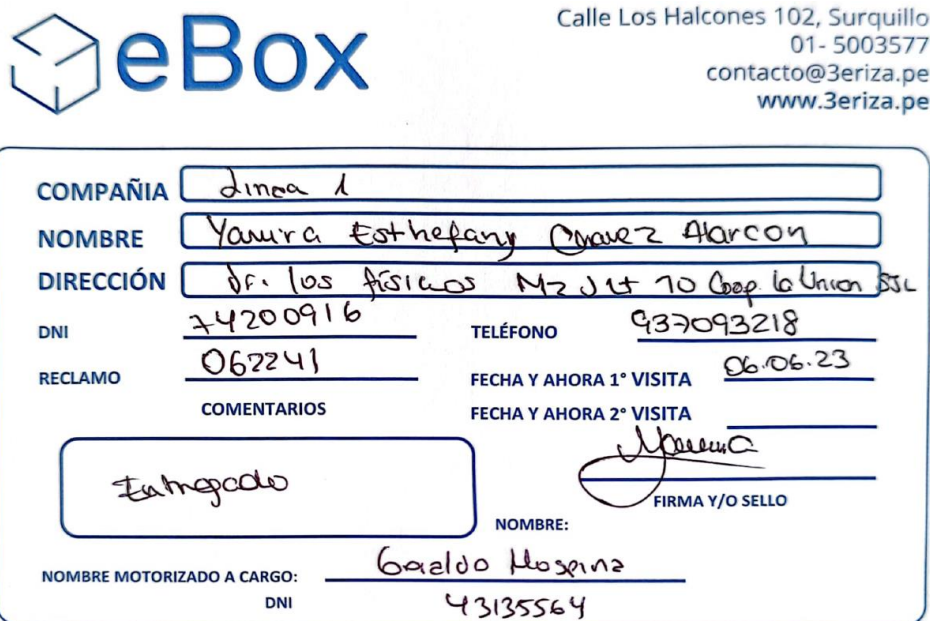 eBox
Calle Los Halcones 102, Surquillo
01- 5003577
contacto@3eriza.pe
www.3eriza.pe
COMPAÑIA Linea 1
NOMBRE Yamira Esthefany Chavez Alarcon
DIRECCIÓN Jr. los físicos Mz J Lt 10 Coop. la Union SJL
DNI 74200916 TELÉFONO 937093218
RECLAMO 062241 FECHA Y AHORA 1° VISITA 06.06.23
COMENTARIOS FECHA Y AHORA 2° VISITA
Entregado
FIRMA Y/O SELLO
NOMBRE:
NOMBRE MOTORIZADO A CARGO: Geraldo Hospina
DNI 43135564